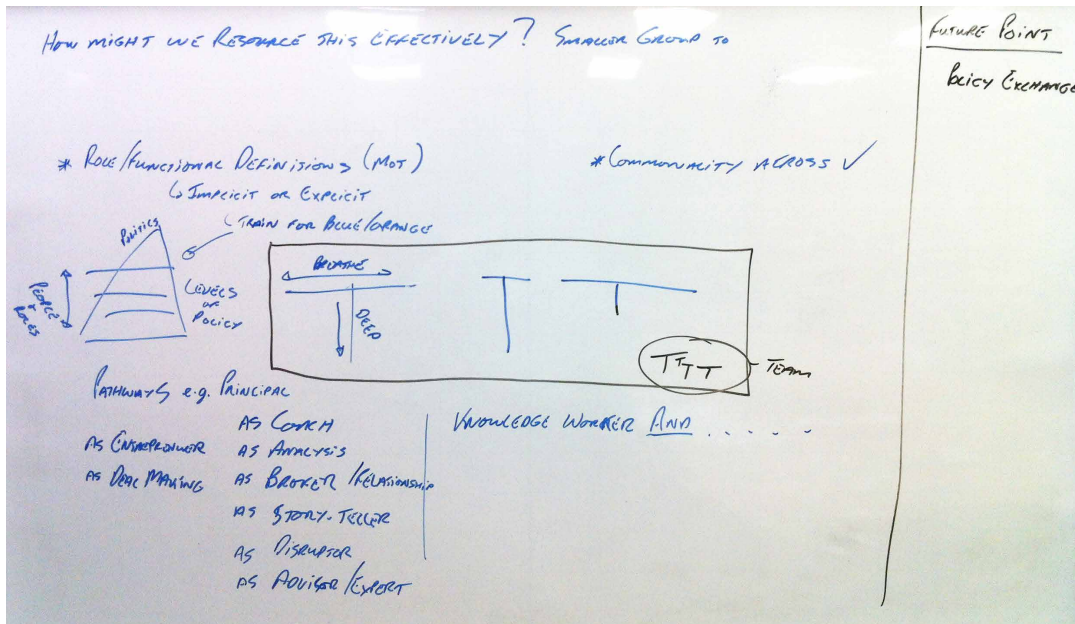 How might we Resource this Effectively? Smaller Group to
Future Point
Policy Exchange
* Role/Functional Definitions (MoT)
↳ Implicit or Explicit
↳ Train for Blue/Orange
* Commonality Across ✓
Politics
People + Roles
Levels of Policy
Breathe
Deep
TTTT
Team
Pathways e.g. Principal
As Coach
As Entreprenuer
As Analysis
As Deal Making
As Broker/Relationship
As Story-Teller
As Disruptor
As Advisor/Expert
Knowledge Worker And . . . . .